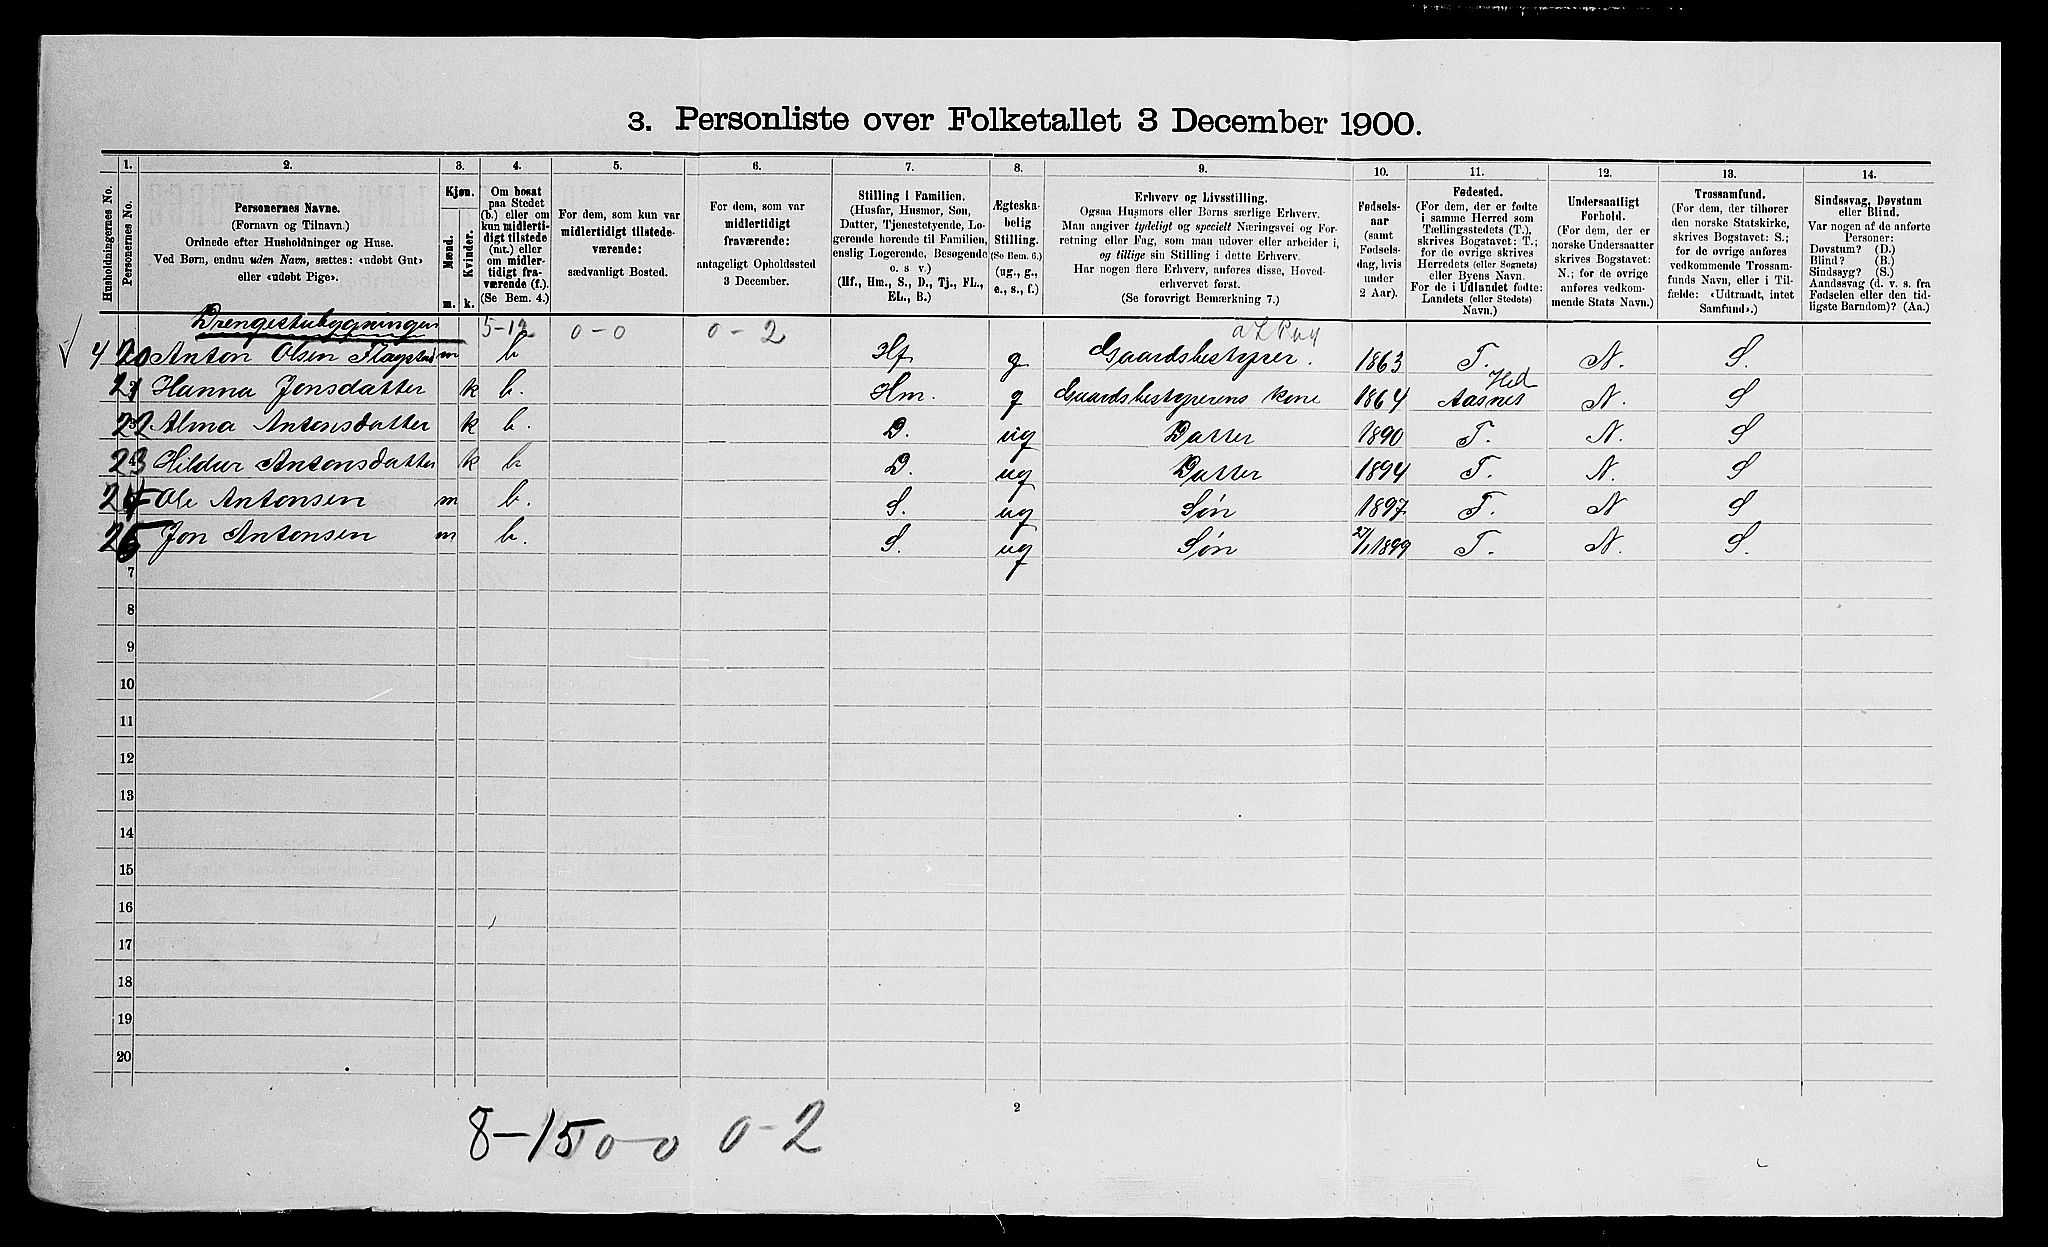 3. Personliste over Folketallet 3 December 1900.
1. 2. 3. 4. 5. 6. 7. 8. 9. 10. 11. 12. 13. 14.
Husholdningernes No.
Personernes No.
Personernes Navne.
(Fornavn og Tilnavn.)
Ordnede efter Husholdninger og Huse.
Ved Børn, endnu uden Navn, sættes: «udøbt Gut»
eller «udøbt Pige».
Kjøn.
Mænd.
Kvinder.
m. k.
Om bosat
paa Stedet
(b.) eller om
kun midlerti-
digt tilstede
(mt.) eller
om midler-
tidigt fra-
værende (f.).
(Se Bem. 4.)
For dem, som kun var
midlertidigt tilstede-
værende:
sædvanligt Bosted.
For dem, som var
midlertidigt
fraværende:
antageligt Opholdssted
3 December.
Stilling i Familien.
(Husfar, Husmor, Søn,
Datter, Tjenestetyende, Lo-
gerende hørende til Familien,
enslig Logerende, Besøgende
o. s v.)
(Hf., Hm., S., D., Tj., FL.,
EL., B.)
Ægteska-
belig
Stilling.
(Se Bem. 6.)
(ug., g.,
e., s., f.)
Erhverv og Livsstilling.
Ogsaa Husmors eller Børns særlige Erhverv.
Man angiver tydeligt og specielt Næringsvei og For-
retning eller Fag, som man udøver eller arbeider i,
og tillige sin Stilling i dette Erhverv.
Har nogen flere Erhverv, anføres disse, Hoved-
erhvervet først.
(Se forøvrigt Bemærkning 7.)
Fødsels-
aar
(samt
Fødsels-
dag, hvis
under
2 Aar).
Fødested.
(For dem, der er fødte
i samme Herred som
Tællingsstedets (T.),
skrives Bogstavet: T.;
for de øvrige skrives
Herredets (eller Sognets)
eller Byens Navn.
For de i Udlandet fødte:
Landets (eller Stedets)
Navn.)
Undersaatligt
Forhold.
(For dem, der er
norske Undersaatter
skrives Bogstavet:
N.; for de øvrige
anføres vedkom-
mende Stats Navn.)
Trossamfund.
(For dem, der tilhører
den norske Statskirke,
skrives Bogstavet: S.;
for de øvrige anføres
vedkommende Trossam-
funds Navn, eller i Til-
fælde: «Udtraadt, intet
Samfund».)
Sindssvag, Døvstum
eller Blind.
Var nogen af de anførte
Personer:
Døvstum? (D.)
Blind? (B.)
Sindssyg? (S.)
Aandssvag (d. v. s. fra
Fødselen eller den tid-
ligste Barndom)? (Aa.)
Drengestubygningen 5-12 0-0 0-2
4 20 Anton Olsen Flagstad m b Hf g Gaardsbestyrer. 1863 T. N. S.
21 Hanna Jonsdatter k b. Hm. g Gaardsbestyrerens kone 1864 Aasnes Hed N. S
22 Alma Antonsdatter k b. D. ug Datter 1890 T. N. S
23 Hildur Antonsdatter k b D. ug Datter 1894 T. N. S
24 Ole Antonsen m b. S. ug Søn 1897 T. N S
25 Jon Antonsen m b. S. ug Søn 27/1 1899 T. N. S.
7
8
9
10
11
12
13
14
15
16
17
18
19
20
2
8-15 0-0 0-2